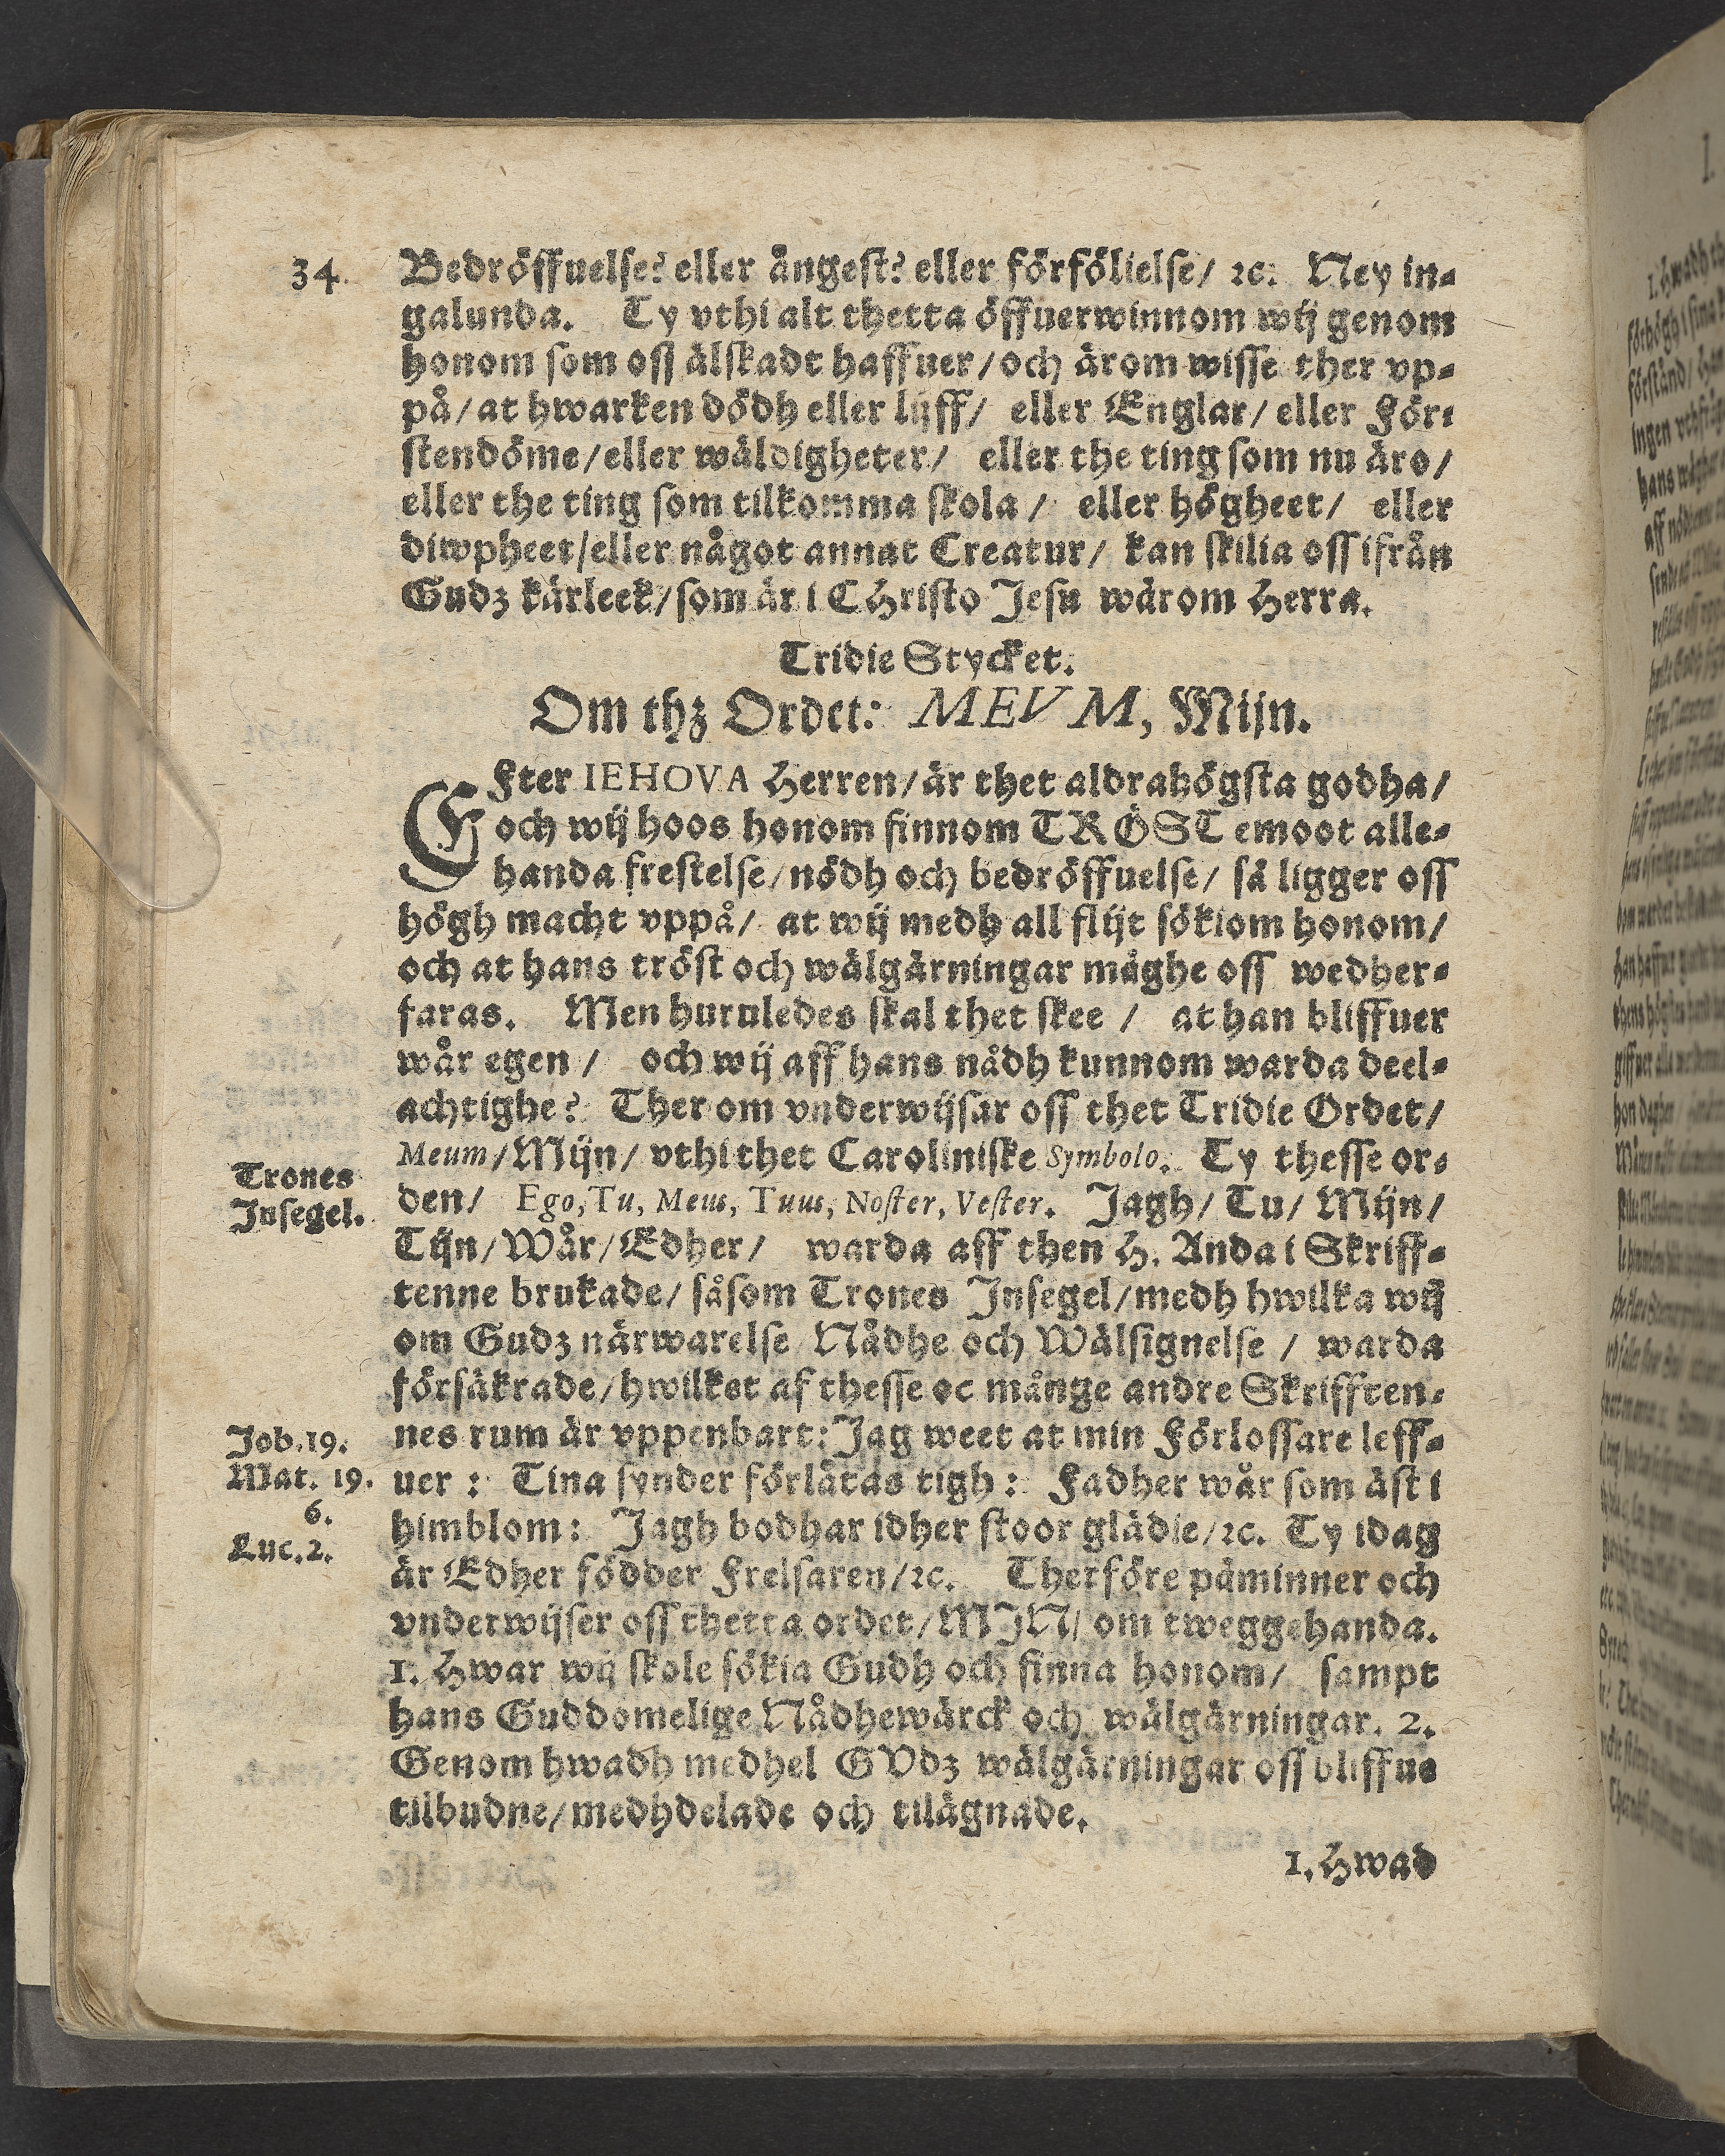 34. Bedröffuelse? eller ångest? eller förfölielse/ ꝛc. Ney in-
galunda. Ty vthi alt thetta öffuerwinnom wij genom
honom som oss älskadt haffuer/ och ärom wisse ther vp-
på/ at hwarken dödh eller lijff/ eller Englar/ eller För-
stendöme/ eller wäldigheter/ eller the ting som nu äro/
eller the ting som tilkomma skola/ eller högheet/ eller
diwpheet/ eller något annat Creatur/ kan skilia oss ifrån
Gudz kärleek/ som är i CHristo Jesu wårom Herra.
Tridie Stycket.
Om thz Ordet: MEVM, Mijn.
EFter IEHOVA Herren/ är thet aldrahögsta godha/
och wij hoos honom finnom TRÖST emoot alle-
handa frestelse/ nödh och bedröffuelse/ så ligger oss
högh macht vppå/ at wij medh all flijt sökiom honom/
och at hans tröst och wälgärningar måghe oss wedher-
faras. Men huruledes skal thet skee / at han bliffuer
wår egen / och wij aff hans nådh kunnom warda deel-
achtighe? Ther om vnderwijsar oss thet Tridie Ordet/
Meum/ Mijn/ vthi thet Caroliniske Symbolo. Ty thesse or-
Trones
Insegel.
den/ Ego, Tu, Meus, Tuus, Noster, Vester. Jagh/ Tu/ Mijn/
Tijn/ Wår/ Edher/ warda aff then H. Anda i Skriff-
tenne brukade/ såsom Trones Insegel/ medh hwilka wij
om Gudz närwarelse Nådhe och Wälsignelse / warda
försäkrade/ hwilket af thesse oc månge andre Skrifften-
Job. 19.
nes rum är vppenbart: Jag weet at min Förlossare leff-
Mat. 19.
6.
uer : Tina synder förlåtas tigh: Fadher wår som äst i
himblom: Jagh bodhar idher stoor glädie/ ꝛc. Ty idag
Luc. 2.
är Edher födder Frelsaren/ ꝛc. Therföre påminner och
vnderwijser oss thetta ordet/ MIN/ om tweggehanda.
1. Hwar wij skole sökia Gudh och finna honom/ sampt
hans Guddomelige Nådhewärck och wälgärningar. 2.
Genom hwadh medhel GVdz wälgärningar oss bliffue
tilbudne/ medhdelade och tilägnade.
1. Hwad